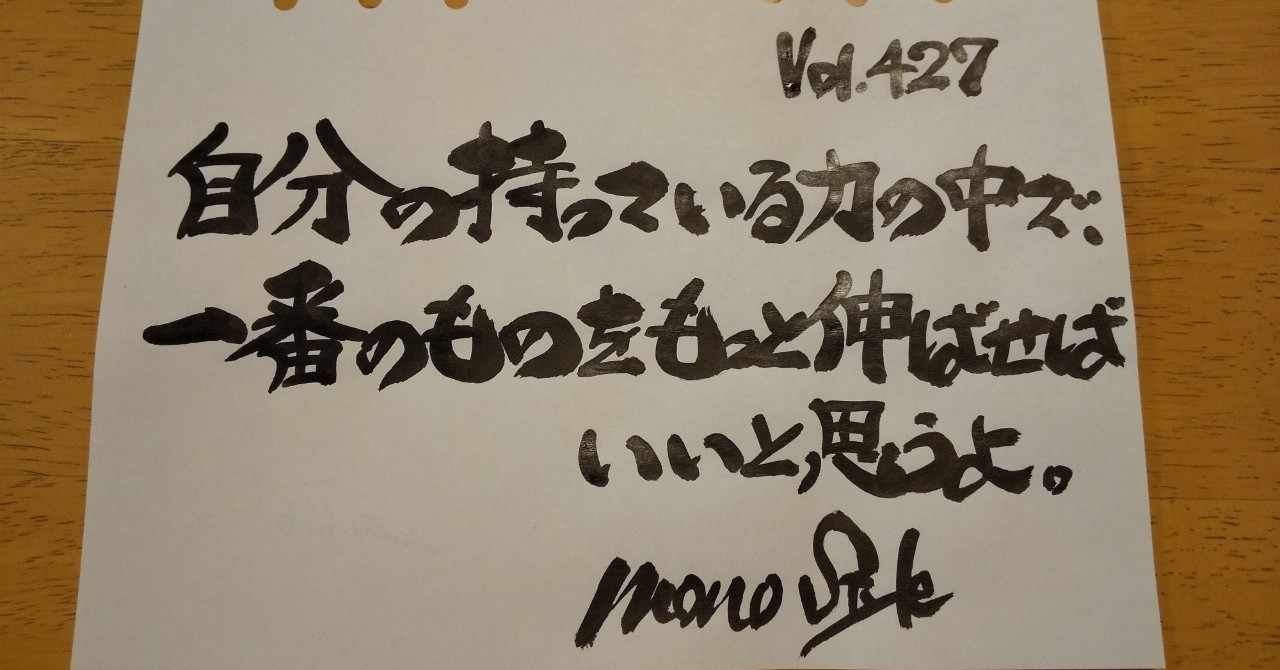 Vol.427
自分の持っている力の中で、
一番のものをもっと伸ばせば
いいと、思うよ。
mono Style